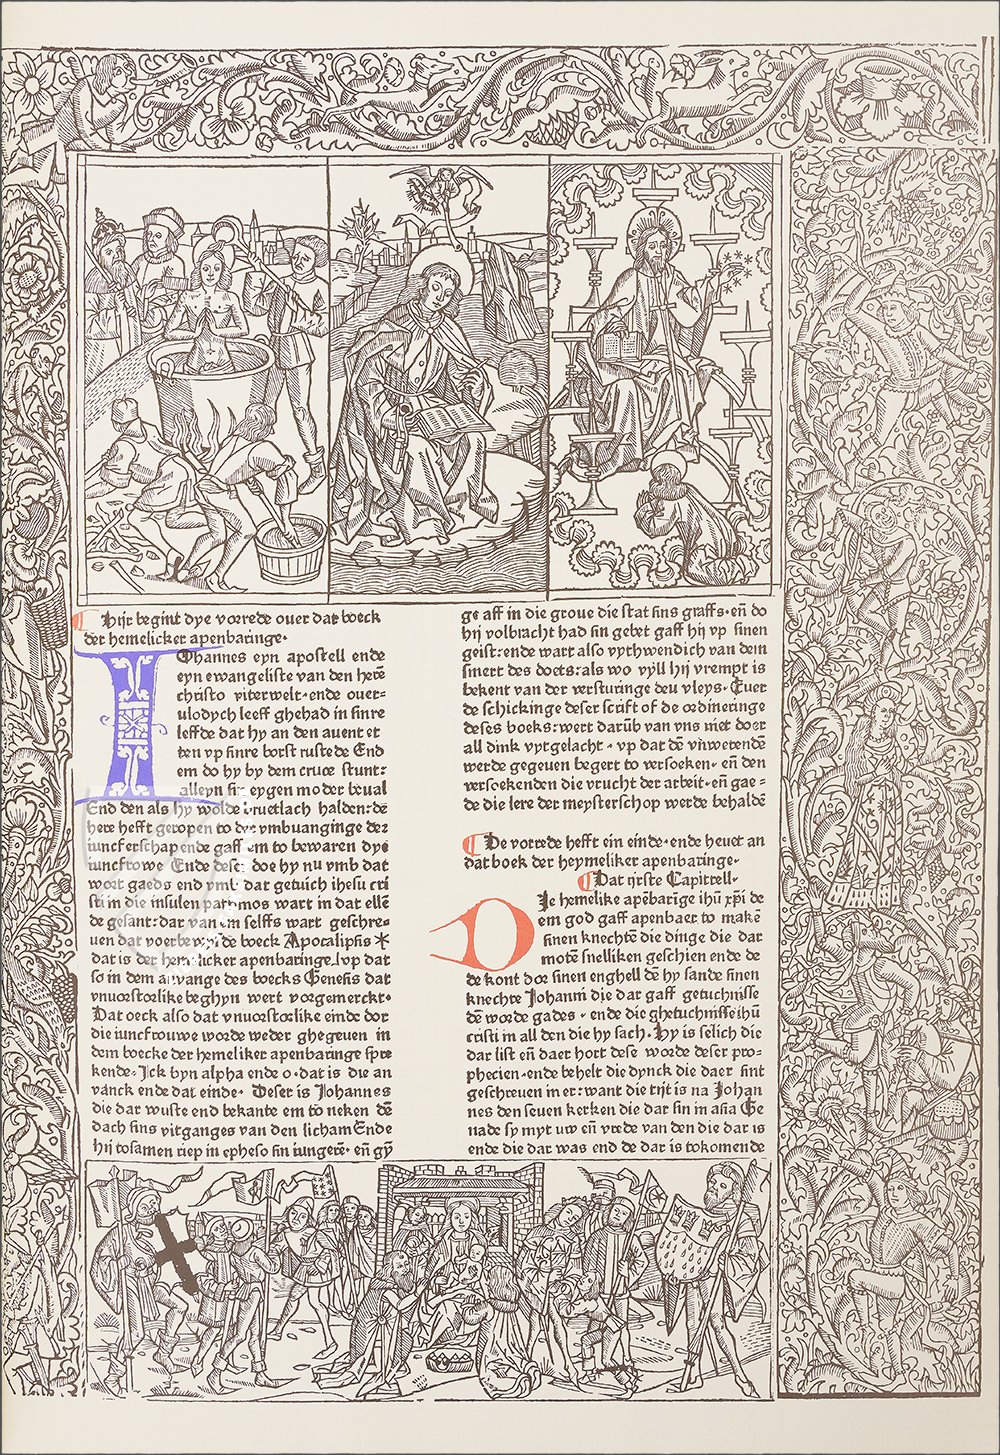 Hijr begint dye vorrede ouer dat boeck
der hemelicker apenbaringe.
IOhannes eyn apostell ende
eyn ewangeliste van den herē
christo viterwelt. ende ouer-
ulodych leeff ghehad in sinre
leffde dat hy an den auent et
ten vp sinre borst rustede End
em do hy by dem cruce stunt:
alleyn sin eygen moder beual
End den als hy wolde bruetlach halden: dē
here hefft geropen to der ymbuanginge der
iuncferschapende gaff em to bewaren dye
iuncfrowe. Ende deser doe hy nu vmb dat
wort gaeds end vmb dat getuich ihesu cri
sti in die insulen pathmos wart in dat ellē
de gesant: dar van em selffs wart geschre-
uen dat voerbewysde boeck Apocalipsis
dat is der hemelicker apenbaringe. vp dat
so in dem anvange des boecks Genesis dat
vnuorstorlike beghyn wert vorgemerckt.
Dat oeck also dat vnuorstorlike einde dor
die iuncfrouwe worde weder ghegeuen in
dem boecke der hemeliker apenbaringe spre
kende. Jck byn alpha ende o. dat is die an
vanck ende dat einde. Deser is Johannes
die dar wuste end bekante em to neken dē
dach sins vitganges van den licham Ende
hij tosamen riep in epheso sin iungerē. eñ gy
ge aff in die groue die stat sins graffs. eñ do
hij volbracht had sin gebet gaff hij vp sinen
geist: ende wart also vythwendich van dem
smert des doets: als wo vyll hij vrempt is
bekent van der versturinge deu vleys. Euer
de schickinge deser scrift of de ordineringe
deses boeks: wert darūb van vns niet doer
all dink vytgelacht. vp dat dē vnwetendē
werde gegeuen begert to versoeken. eñ den
versoekenden die vrucht der arbeit. eñ gae=
de die lere der meysterschop werde behaldē
De vorrede hefft ein einde. ende heuet an
dat boek der heymeliker apenbaringe.
Dat irste Capittell.
DJe hemelike apēbarige ihū xp̄i de
em god gaff apenbaer to makē
sinen knechtē die dinge die dar
motē snelliken geschien ende de
de kont doe sinen enghell dē hy sande sinen
knechte Johanni die dar gaff getuchnisse
dē worde gades. ende die ghetuchnisse ihū
cristi in all den die hy sach. Hy is selich die
dar list eñ daer hort dese worde deser pro-
phecien. ende behelt die dynck die daer sint
geschreuen in er: want die tijt is na Johan
nes den seuen kerken die dar sin in asia Ge
nade sy myt uw eñ vrede van den die dar is
ende die dar was end de dar is tokomende